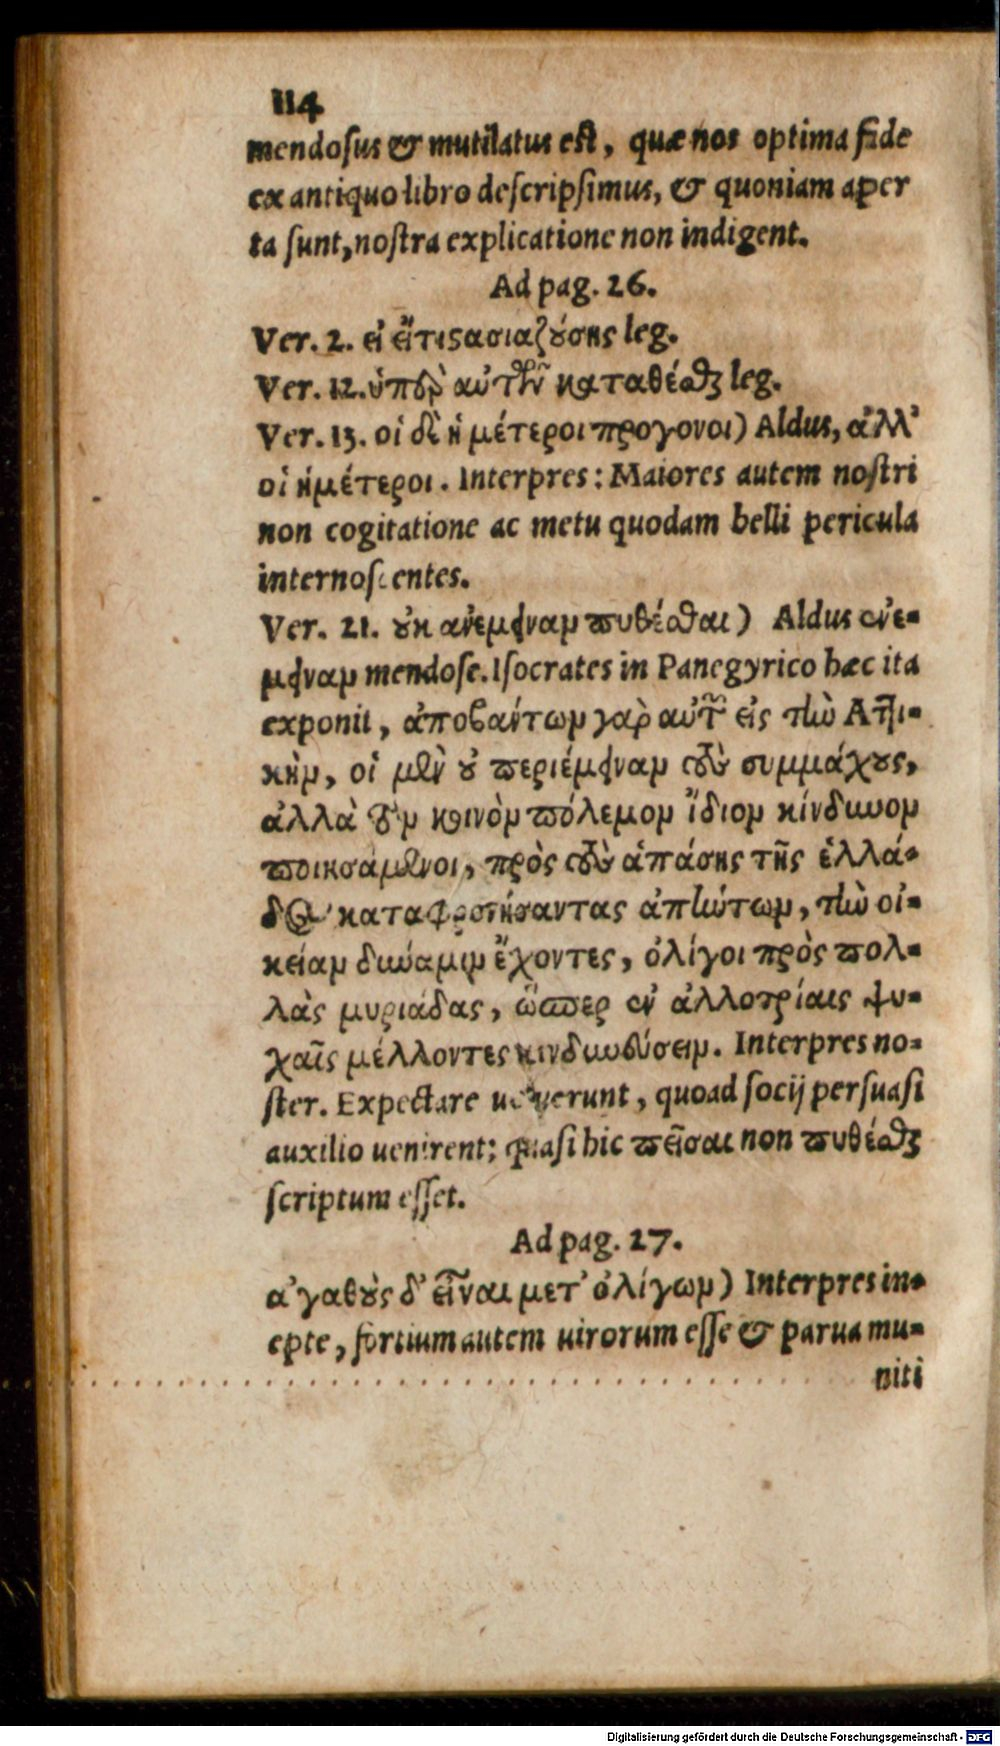 114
mendosus & mutilatus est, quæ nos optima fide
ex antiquo libro descripsimus, & quoniam aper
ta sunt, nostra explicatione non indigent.
Ad pag. 26.
Ver. 2. εἰ ἔτι ϛασιαζούσης leg.
Ver. 12. ὑπὲρ αὐτῶν καταθέσθαι leg.
Ver. 13. οἱ δὲ ἡμέτεροι πρόγονοι) Aldus, ἀλλ'
οἱ ἡμέτεροι. Interpres: Maiores autem nostri
non cogitatione ac metu quodam belli pericula
internoscentes.
Ver. 21. οὐκ ἀνέμειναν πυθέσθαι) Aldus ἐνέ-
μειναν mendose. Isocrates in Panegyrico hæc ita
exponit, ἀποβάντων γὰρ αὐτῶν εἰς τὴν Ατ]ι-
κὴν, οἱ μὲν οὐ περιέμειναν τοὺς συμμάχους,
ἀλλὰ τὸν κοινὸν πόλεμον ἴδιον κίνδυνον
ποιησάμενοι, πρὸς τοὺς ἁπάσης τῆς ἑλλά-
δος καταφρονήσαντας ἀπήντων, τὴν οἰ-
κείαν δύναμιν ἔχοντες, ὀλίγοι πρὸς πολ-
λὰς μυριάδας, ὥσπερ ἐν ἀλλοτρίαις ψυ-
χαῖς μέλλοντες κινδυνεύσειν. Interpres no-
ster. Expectare uoluerunt, quoad socij persuasi
auxilio uenirent: quasi hic πεῖσαι non πυθέσθαι
scriptum esset.
Ad pag. 27.
ἀγαθοὺς δ' εἶναι μετ' ὀλίγων) Interpres in-
epte, fortium autem uirorum esse & parua mu-
niti
Digitalisierung gefördert durch die Deutsche Forschungsgemeinschaft - DFG